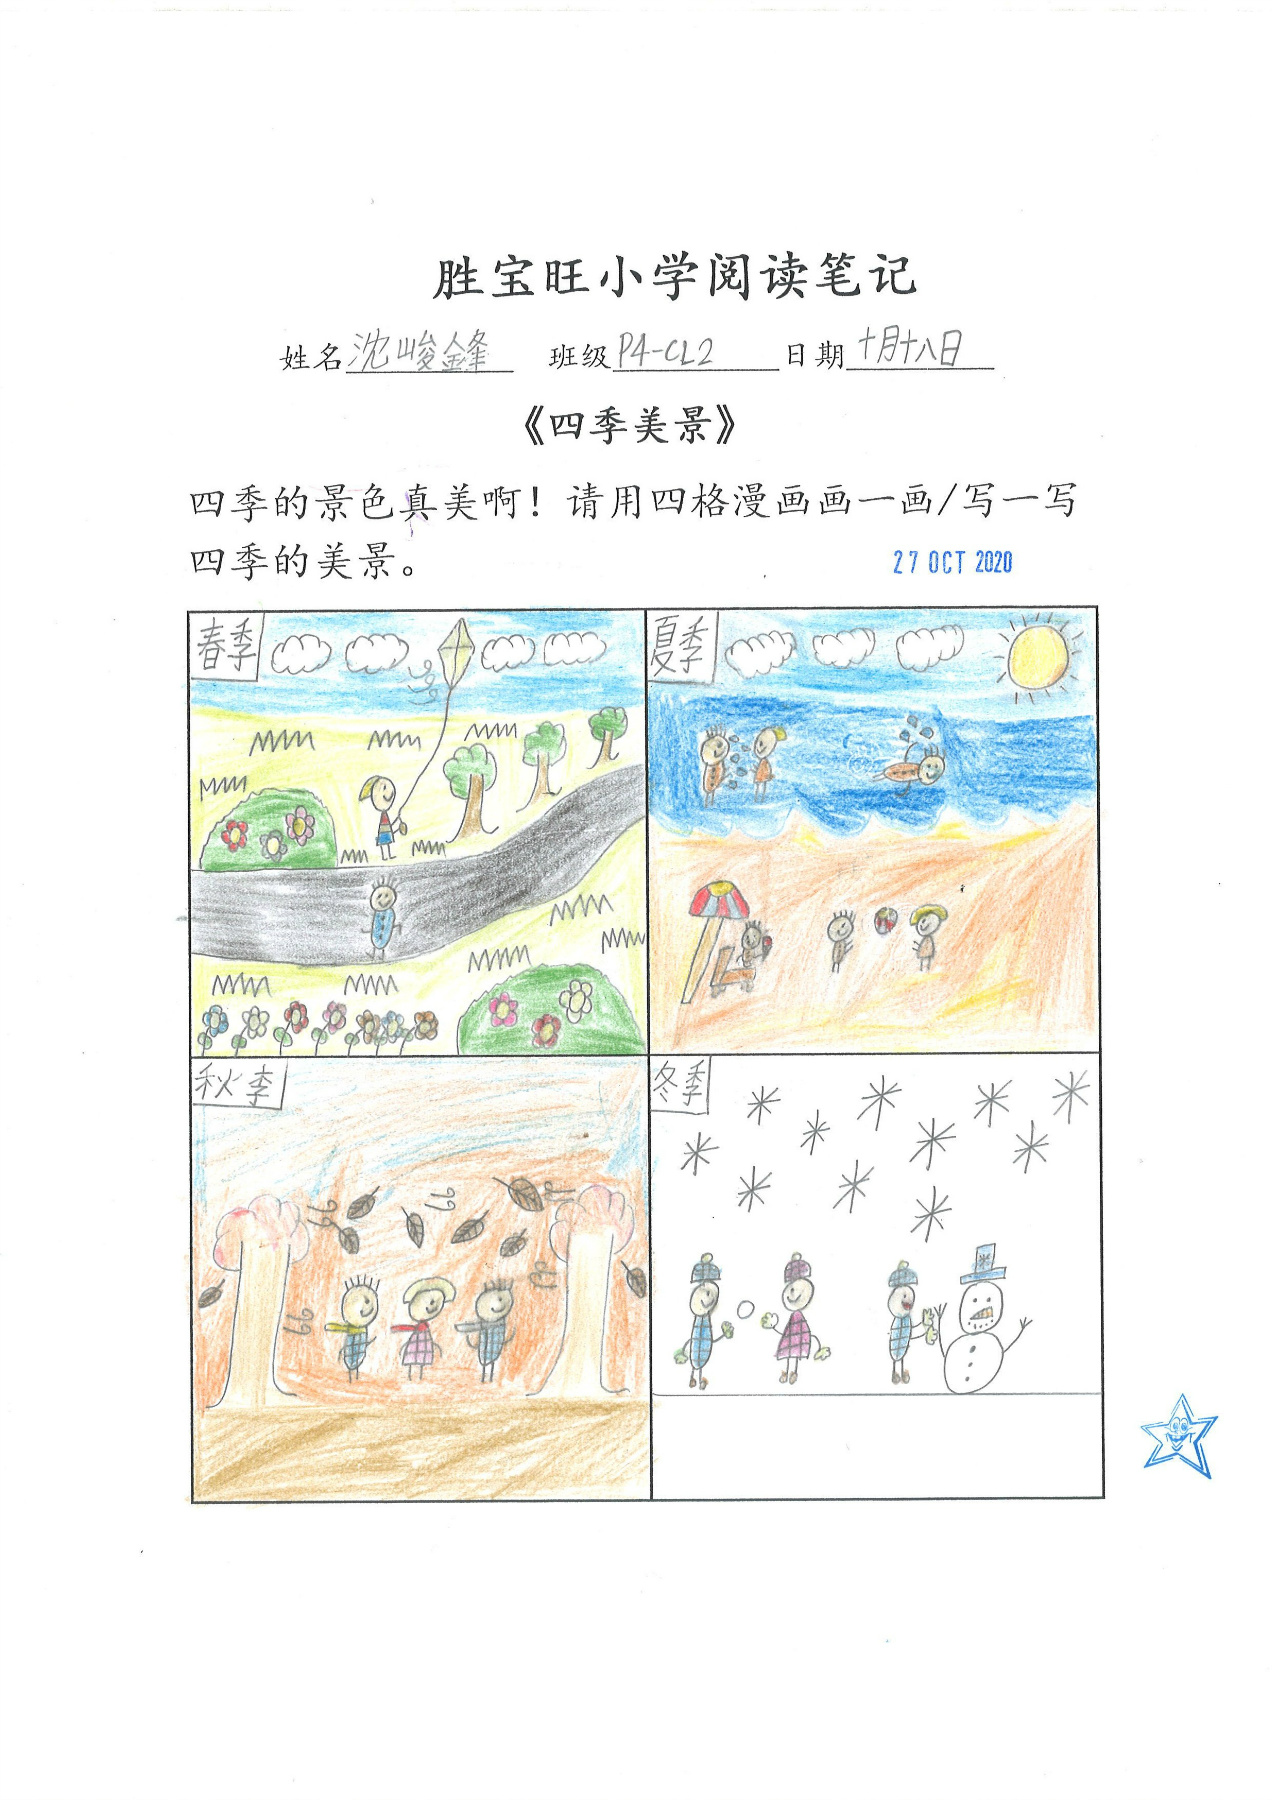 胜宝旺小学阅读笔记
姓名 沈峻鋒 班级 P4-CL2 日期 十月十八日
《四季美景》
四季的景色真美啊！请用四格漫画画一画/写一写
四季的美景。
27 OCT 2020
春季
夏季
秋季
冬季